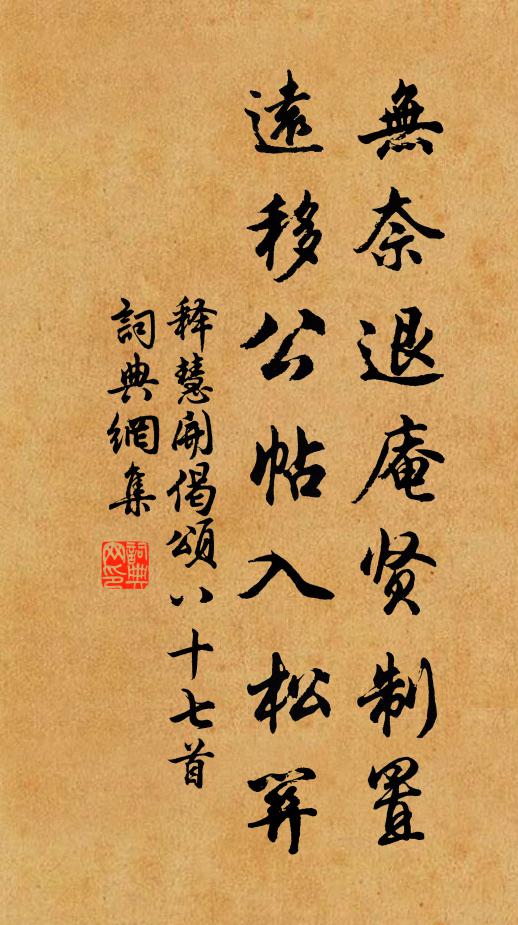 無奈退庵贤制置
遠移公帖入松關
释慧開偈頌八十七首
詞典網集
詞典网印